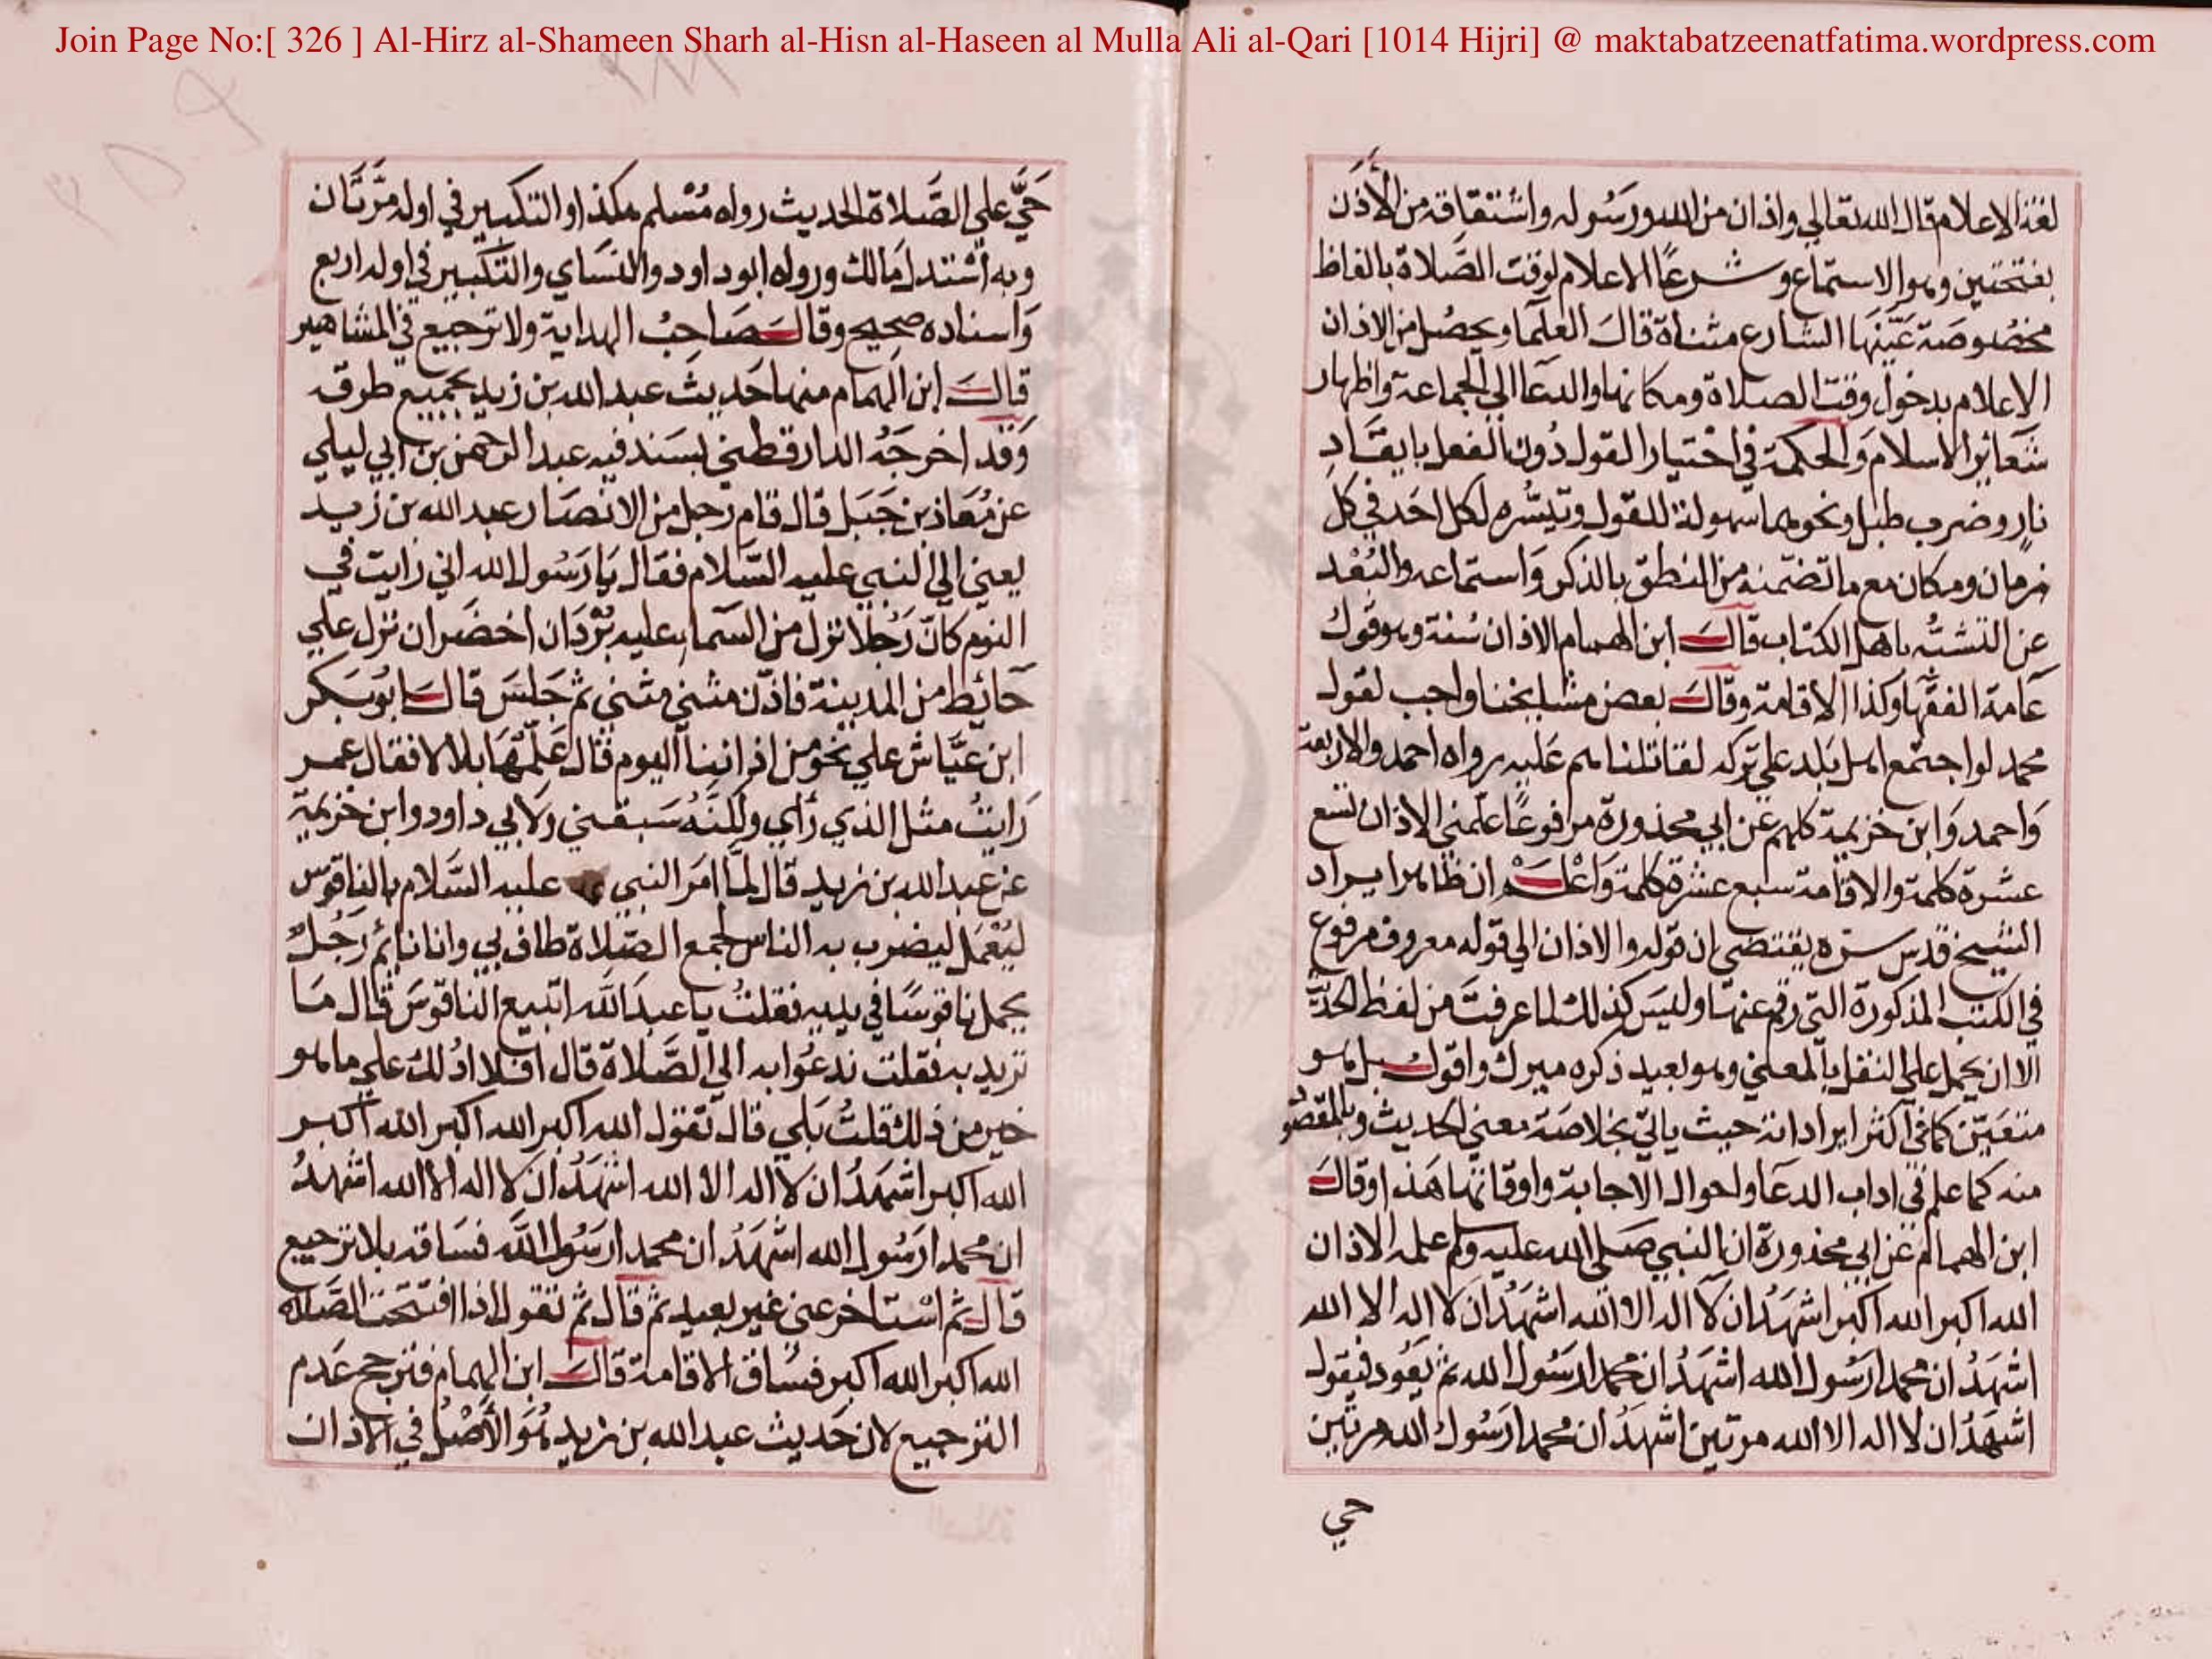 Join Page No:[ 326 ] Al-Hirz al-Shameen Sharh al-Hisn al-Haseen al Mulla Ali al-Qari [1014 Hijri] @ maktabatzeenatfatima.wordpress.com
لغة الاعلام قال الله تعالي واذان من الله ورسوله واشتقاقه من الأَذَن
بفتحتين وهو الاستماع وشرعًا الاعلام لوقت الصَّلاة بالفاظ
مخصُوصَة عَيَّنهَا الشارع مثناة قالَ العلَما ويحصُل من الاذان
الاعلام بدخول وقت الصلاة ومكانها والدعَا الي الجماعة واظهار
شعائر الاسلام وَالحكمة في اختيار القول دُون الفعل بايقَادِ
نارٍ وضرب طبل ونحوهما سهولة القول وتيسُّره لكل احَد في كل
زمان ومكان مع ما تضمنه من النطق بالذكر وَاستماعه والبُعْد
عن التشبُّه باهل الكتاب قالَ ابن الهمام الاذان سُنة وهو قول
عَامة الفقها وكذا الاقامة وقالَ بعض مشايخنا واجب لقول
محمد لو اجتمع اهل بَلد علي تركه لقاتلناهم عَليه رواه احمد والاربعة
وَاحمد وَابن خزيمة كلهم عن ابي محذورة مرفوعًا علمني الاذان تسع
عشرة كلمة والاقامة سبع عشرة كلمة وَاعْلَمْ ان ظاهر ايراد
الشيخ قدس سره يقتضي ان قوله والاذان الي قوله معروف مرفوع
في الكتب المذكورة التي رقم عنهَا وليسَ كذلك لما عرفتَ من لفظ الحديث
الا ان يحمل علي النقل بالمعني وهو بعيد ذكره ميرك واقول بل هو
متعَيّن كما في اكثر ايراداته حيث ياتي بخلاصَة معني الحديث وبالمقصود
منه كما علم في اداب الدعَا واحوال الاجابة واوقاتها هَذا وقالَ
ابن الهمام عن ابي محذورة ان النبي صَلي الله عليه وسلم علمه الاذان
الله اكبر الله اكبر اشهَدُ ان لا اله الا الله اشهَدُ ان لا اله الا الله
اشهَدُ ان محمدا رسُول الله اشهَدُ ان محمدا رسُول الله ثم يَعُود فيقول
اشهَدُ ان لا اله الا الله مرتين اشهَدُ ان محمدا رَسُول الله مرتين
حي
حَيَّ علي الصَّلاة الحديث رواه مُسْلم هكذا والتكبير في اوله مَرَّتَان
وبه اسْتدل مَالك ورواه ابو داود والنسَاي والتكبير في اوله اربع
وَاسناده صحيح وقالَ صَاحبُ الهداية ولا ترجيع في المشاهير
قالَ ابن الهمام منها حَديث عبد الله بن زيد بجميع طرقه
وَقد اخرجَهُ الدارقطني بسَند فيه عبد الرحمن بن ابي ليلي
عن مُعَاذ بن جَبَل قال قام رجل من الانصَار عبد الله بن زيد
يعني الي النبي عليه السَّلام فقال يَا رَسُول الله اني رايت في
النوم كانّ رَجُلا نزل من السّما عليه بُرْدَان اخضَران نزل علي
حَائط من المدينة فاذّن مثني مثني ثم جَلسَ قالَ ابو بَكر
ابن عيَّاش علي نحو من اذاننا اليوم قال عَلِّمْهَا بلالا فقال عمر
رَايتُ مثل الذي رأي ولكنَّهُ سَبقني ولابي داود وابن خزيمة
عن عبد الله بن زيد قال لمَّا امَر النبي عليه السَّلام بالناقوس
ليُعْمَل ليضرب به الناس لجمع الصَّلاة طاف بي وانا نائم رَجُل
يحمل ناقوسًا في يديه فقلتُ يا عبدَ اللّه اتبيع الناقوسَ قال مَا
تريد به فقلت ندعُوا به الي الصَّلاة قال افلا ادُلك علي ما هو
خير من ذلك قلتُ بَلي قال تقول الله اكبر الله اكبر الله اكبر
الله اكبر اشهَدُ ان لا اله الا الله اشهَدُ ان لا اله الا الله اشهدُ
ان محمدا رَسُول الله اشهَدُ ان محمدا رسُول اللّه فسَاقه بلا ترجيع
قال ثم اسْتاخر عني غير بعيد ثم قال ثم تقول اذا افتتحت الصَّلاة
الله اكبر الله اكبر فسَاق الاقامة قالَ ابن الهمام فترجح عَدم
الترجيع لان حَديث عبد الله بن زيد هُوَ الأَصْلُ في الاذان